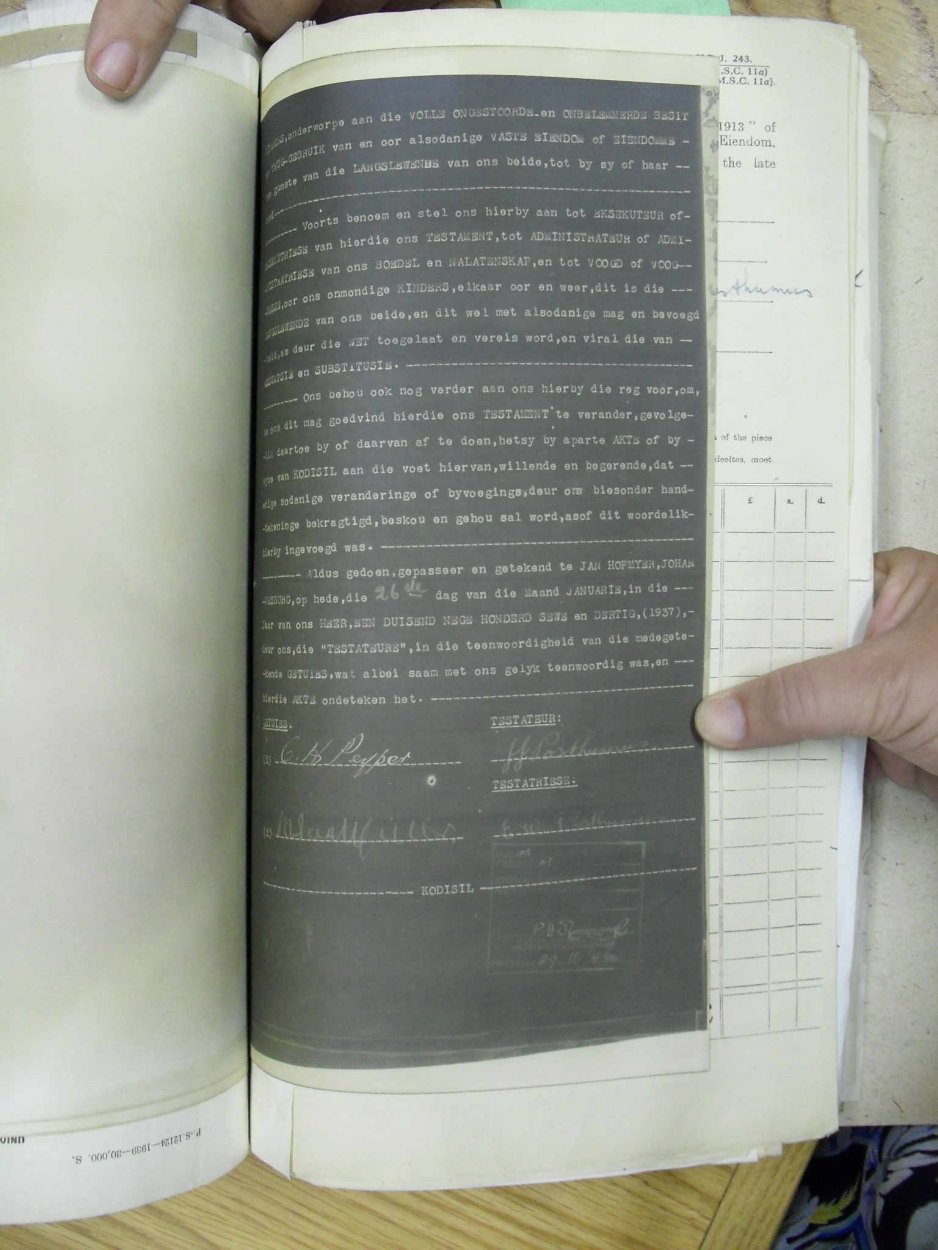 onderworpe aan die VOLLE ONGESTOORDE en ONBELEMMERDE BESIT
VRUG-GEBRUIK van en oor alsodanige VASTE EIENDOM of EIENDOMME -
gunste van die LANGSLEWENDE van ons beide,tot by sy of haar --
Voorts benoem en stel ons hierby aan tot EKSEKUTEUR of-
van hierdie ons TESTAMENT,tot ADMINISTRATEUR of ADMI-
van ons BOEDEL en NALATENSKAP,en tot VOOGD of VOOG--
oor ons onmondige KINDERS,elkaar oor en weer,dit is die ---
van ons beide,en dit wel met alsodanige mag en bevoegd
as deur die WET toegelaat en vereis word,en viral die van --
en SUBSTITUSIE.
Ons behou ook nog verder aan ons hierby die reg voor,om,
ons dit mag goedvind hierdie ons TESTAMENT te verander,gevolge-
daartoe by of daarvan af te doen,hetsy by aparte AKTE of by -
van KODISIL aan die voet hiervan,willende en begerende,dat --
enige sodanige veranderinge of byvoegings,deur ons biesonder hand-
-tekeninge bekragtigd,beskou en gehou sal word,asof dit woordelik-
hierby ingevoegd was.
Aldus gedoen,gepasseer en getekend te JAN HOFMYER,JOHAN
op hede,die 26ste dag van die Maand JANUARIE,in die ---
Jaar van ons HEER,EEN DUISEND NEGE HONDERD SEWE en DERTIG,(1937),-
deur ons,die "TESTATEURE",in die teenwoordigheid van die medegete-
-kende GETUIES,wat albei saam met ons gelyk teenwoordig was,en ---
hierdie AKTE ondeteken het.
GETUIES. TESTATEUR:
C. H Peyper J J Posthumus
TESTATRIESE:
KODISIL
J. 243.
M.S.C. 11a)
1913" of
Eiendom,
the late
of the piece
deeltes, moet
£ s. d.
P.-S.12124—1939—30,000. S.